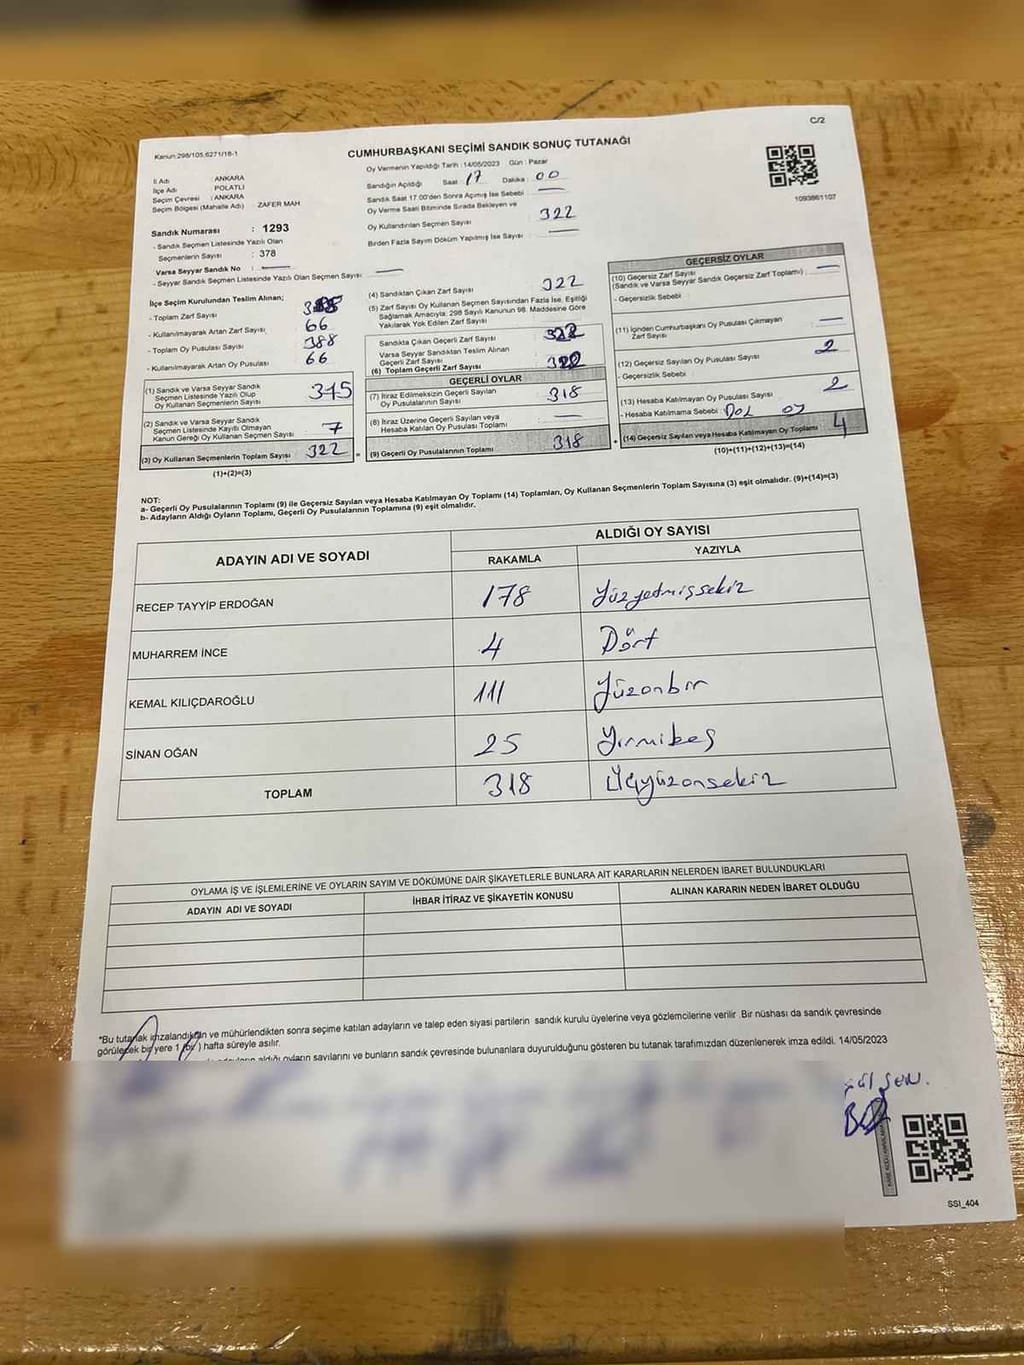 C/2
Kanun:298/105,6271/16-1
CUMHURBAŞKANI SEÇİMİ SANDIK SONUÇ TUTANAĞI
Oy Vermenin Yapıldığı Tarih : 14/05/2023 Gün : Pazar
1093861107
İl Adı : ANKARA
İlçe Adı : POLATLI
Seçim Çevresi : ANKARA
Seçim Bölgesi (Mahalle Adı) : ZAFER MAH
Sandık Numarası : 1293
- Sandık Seçmen Listesinde Yazılı Olan
Seçmenlerin Sayısı : 378
Varsa Seyyar Sandık No :
- Seyyar Sandık Seçmen Listesinde Yazılı Olan Seçmen Sayısı :
Sandığın Açıldığı Saat : 17 Dakika : 00
Sandık Saat 17.00'den Sonra Açılmış İse Sebebi :
Oy Verme Saati Bitiminde Sırada Bekleyen ve
Oy Kullandırılan Seçmen Sayısı : 322
Birden Fazla Sayım Döküm Yapılmış İse Sayısı :
İlçe Seçim Kurulundan Teslim Alınan;
- Toplam Zarf Sayısı :
- Kullanılmayarak Artan Zarf Sayısı : 66
- Toplam Oy Pusulası Sayısı : 388
- Kullanılmayarak Artan Oy Pusulası : 66
(1) Sandık ve Varsa Seyyar Sandık
Seçmen Listesinde Yazılı Olup
Oy Kullanan Seçmenlerin Sayısı : 315
(2) Sandık ve Varsa Seyyar Sandık
Seçmen Listesinde Kayıtlı Olmayan
Kanun Gereği Oy Kullanan Seçmen Sayısı : 7
(3) Oy Kullanan Seçmenlerin Toplam Sayısı : 322
(1)+(2)=(3)
(4) Sandıktan Çıkan Zarf Sayısı : 322
(5) Zarf Sayısı Oy Kullanan Seçmen Sayısından Fazla İse, Eşitliği
Sağlamak Amacıyla; 298 Sayılı Kanunun 98. Maddesine Göre
Yakılarak Yok Edilen Zarf Sayısı :
Sandıkta Çıkan Geçerli Zarf Sayısı : 322
Varsa Seyyar Sandıktan Teslim Alınan
Geçerli Zarf Sayısı :
(6) Toplam Geçerli Zarf Sayısı : 322
GEÇERLİ OYLAR
(7) İtiraz Edilmeksizin Geçerli Sayılan
Oy Pusulalarının Sayısı : 318
(8) İtiraz Üzerine Geçerli Sayılan veya
Hesaba Katılan Oy Pusulası Toplamı :
(9) Geçerli Oy Pusulalarının Toplamı : 318
GEÇERSİZ OYLAR
(10) Geçersiz Zarf Sayısı :
(Sandık ve Varsa Seyyar Sandık Geçersiz Zarf Toplamı)
- Geçersizlik Sebebi :
(11) İçinden Cumhurbaşkanı Oy Pusulası Çıkmayan
Zarf Sayısı :
(12) Geçersiz Sayılan Oy Pusulası Sayısı : 2
- Geçersizlik Sebebi :
(13) Hesaba Katılmayan Oy Pusulası Sayısı : 2
- Hesaba Katılmama Sebebi : BOL OY
(14) Geçersiz Sayılan veya Hesaba Katılmayan Oy Toplamı : 4
(10)+(11)+(12)+(13)=(14)
NOT:
a- Geçerli Oy Pusulalarının Toplamı (9) ile Geçersiz Sayılan veya Hesaba Katılmayan Oy Toplamı (14) Toplamları, Oy Kullanan Seçmenlerin Toplam Sayısına (3) eşit olmalıdır. (9)+(14)=(3)
b- Adayların Aldığı Oyların Toplamı, Geçerli Oy Pusulalarının Toplamına (9) eşit olmalıdır.
ADAYIN ADI VE SOYADI
ALDIĞI OY SAYISI
RAKAMLA YAZIYLA
RECEP TAYYİP ERDOĞAN 178 Yüzyetmişsekiz
MUHARREM İNCE 4 Dört
KEMAL KILIÇDAROĞLU 111 Yüzonbir
SİNAN OĞAN 25 Yirmibeş
TOPLAM 318 Üçyüzonsekiz
OYLAMA İŞ VE İŞLEMLERİNE VE OYLARIN SAYIM VE DÖKÜMÜNE DAİR ŞİKAYETLERLE BUNLARA AİT KARARLARIN NELERDEN İBARET BULUNDUKLARI
ADAYIN ADI VE SOYADI İHBAR İTİRAZ VE ŞİKAYETİN KONUSU ALINAN KARARIN NEDEN İBARET OLDUĞU
*Bu tutanak imzalandıktan ve mühürlendikten sonra seçime katılan adayların ve talep eden siyasi partilerin sandık kurulu üyelerine veya gözlemcilerine verilir. Bir nüshası da sandık çevresinde
görülecek bir yere 1 (bir) hafta süreyle asılır.
aldığı oyların sayılarını ve bunların sandık çevresinde bulunanlara duyurulduğunu gösteren bu tutanak tarafımızdan düzenlenerek imza edildi. 14/05/2023
SSI_404